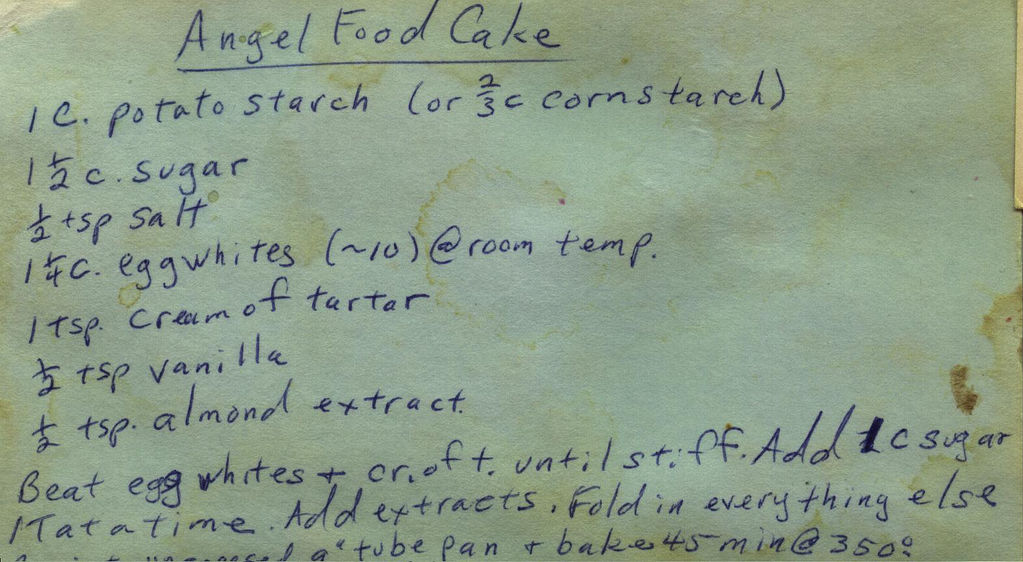 Angel Food Cake
1 C. potato starch (or 2/3 c cornstarch)
1 1/2 c. sugar
1/2 tsp salt
1 1/4 C. eggwhites (~10) @ room temp.
1 tsp. cream of tartar
1/2 tsp vanilla
1/2 tsp. almond extract.
Beat egg whites + cr. of t. until stiff. Add 1 c sugar
1T at a time. Add extracts. Fold in everything else
9" tube pan + bake 45 min @ 350°